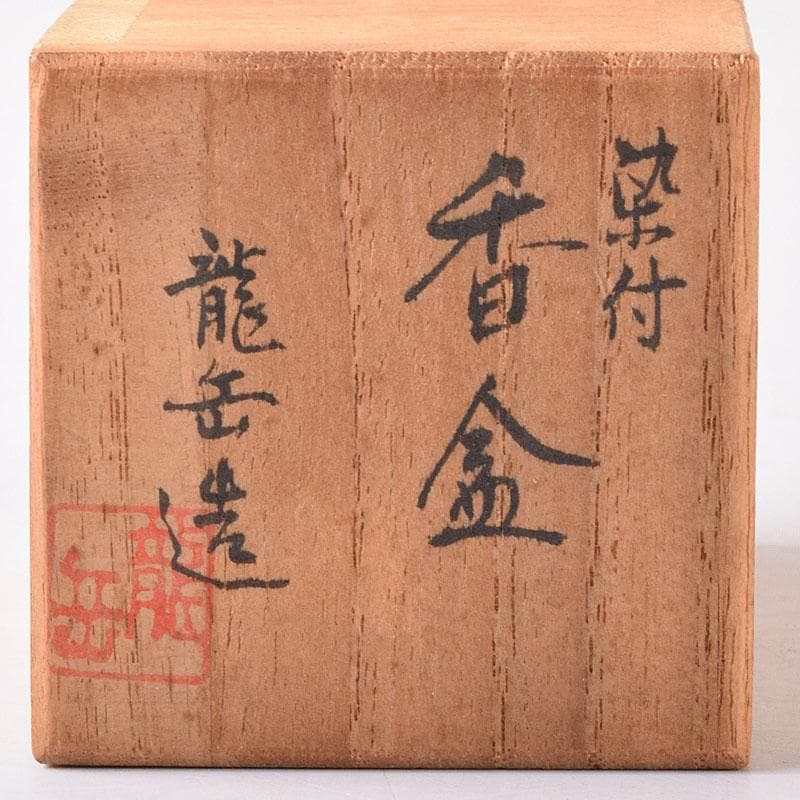 染付
香盒
龍岳造
龍岳